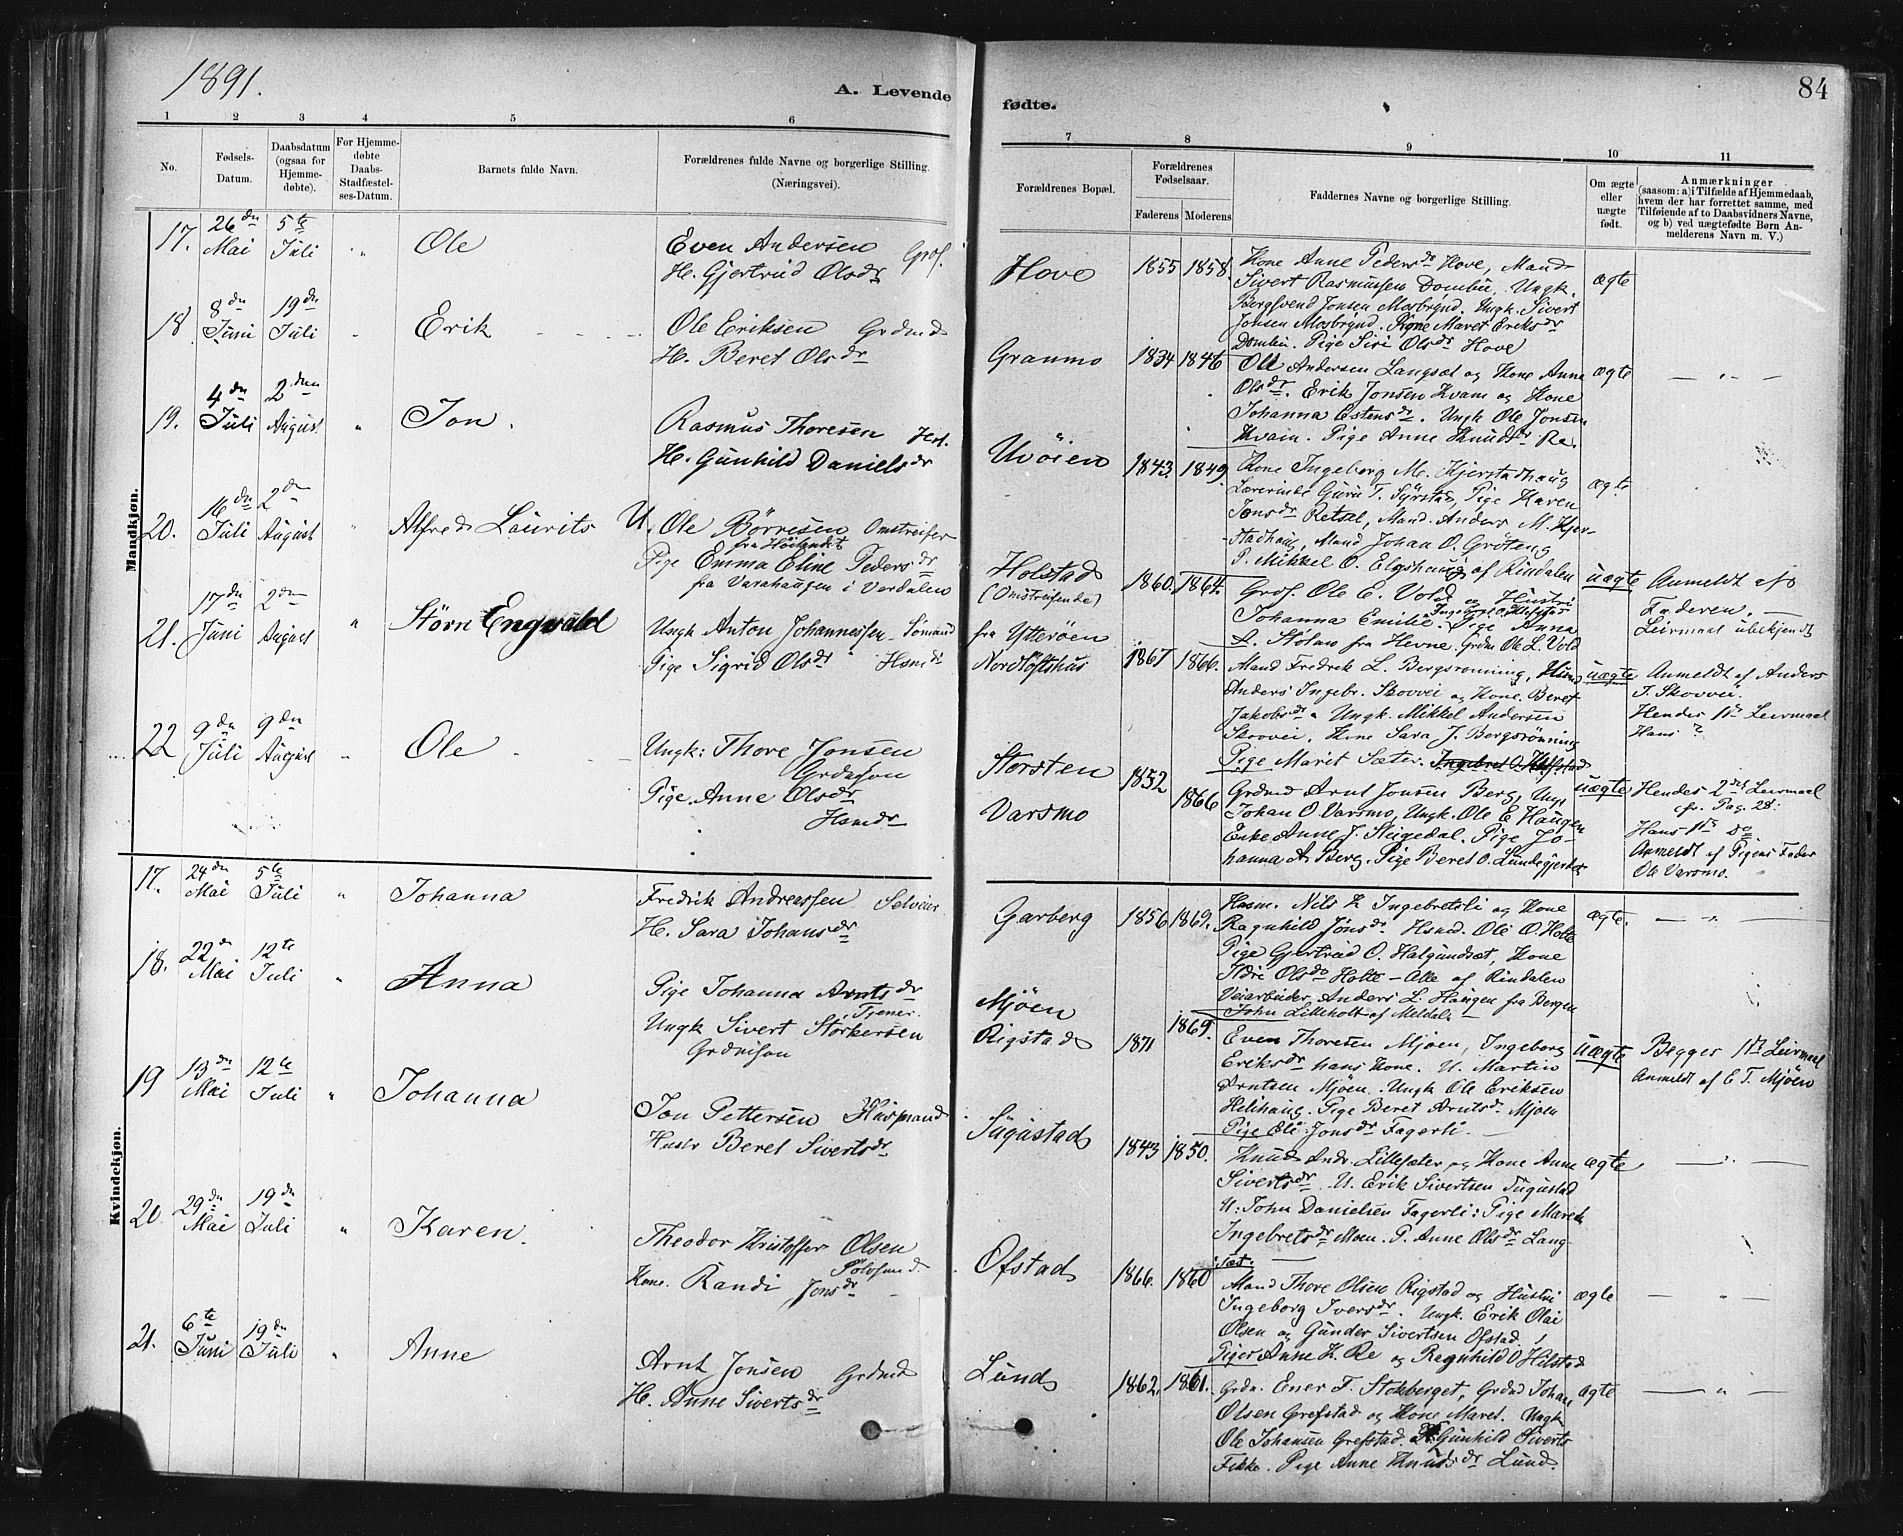 1891.
A. Levende
fødte.
84
1 2 3 4 5 6
7 8 9 10 11
No.
Fødsels-
Datum.
Daabsdatum
(ogsaa for
Hjemme-
døbte).
For Hjemme-
døbte
Daabs-
Stadfæstel-
ses-Datum.
Barnets fulde Navn.
Forældrenes fulde Navne og borgerlige Stilling.
(Næringsvei).
Forældrenes Bopæl.
Forældrenes
Fødselsaar.
Faderens Moderens
Faddernes Navne og borgerlige Stilling.
Om ægte
eller
uægte
født.
Anmærkninger
(saasom: a) i Tilfælde af Hjemmedaab,
hvem der har forrettet samme, med
Tilføiende af to Daabsvidners Navne,
og b) ved uægtefødte Børn An-
melderens Navn m. V.)
Mandkjøn.
17. 26de Mai 5te Juli " Ole
Even Andersen
H. Gjertrud Olsdr
Hove 1855 1858.
Kone Anne Pedersdr Hove, Mand
Sivert Rasmussen Dombu. Ungk.
Bergsvend Jonsen Mosbrynd. Ungk. Sivert
Jonsen Mosbrynd. Pige Maret Eriksdr
Dombu. Pige Siri Olsdr Hove
ægte
18 8de Juni 19de Juli Erik
Ole Eriksen Grdmd
H. Beret Olsdr
Granmo 1834 1846
Ole Andersen Langsæt og Kone Anne
Olsdr. Erik Jonsen Kvam og Kone
Johanna Estensdr. Ungk Ole Jonsen
Kvam. Pige Anne Knudsdr Re.
ægte — " —
19. 4de Juli 2den August " Jon.
Rasmus Thoresen
H. Gunhild Danielsdr
Uvöien 1843. 1849.
Kone Ingeborg M. Kjerstadhaug
Lærerinde Guru T. Syrstad, Pige Karen
Jonsdr Retsel, Mand. Anders M. Kjer-
stadhaug, Mand Johan O. Gröteng
P. Mikkel O. Elgshaug af Rindalen
ægte
20. 16de Juli 2den August " Alfred Laurits
U. Ole Börresen Omstreifer
fra Höilandet
Pige Emma Eline Pedersdr
fra Varahaugen i Verdalen
Holstad
(Omstreifende)
1860. 1864.
Grdf. Ole E. Vold og Hustru
Johanna Emilie. Pige Anna
A. Stölan fra Hevne. Grdm Ole L. Vold
uægte
Anmeldt af
Faderen. —
Leirmaal ubekjendt
21. 17de Juni 2den August " Störn Engvald
Ungk Anton Johannessen Sömand
Pige Sigrid Olsdr Hsmdr
fra Ytteröen
Nordlöftshus
1867 1866.
Mand Fredrik L. Bergsrönning,
Anders Ingebr. Skovvei og Kone Beret
Jakobsdr. Ungk. Mikkel Andersen
Skovvei, Kone Sara J. Bergsrönning
Pige Marit Sæter.
uægte
Anmeldt af Anders
T. Skovvei.
Hendes 1ste Leirmaal
Hans ?
22 9de Juli 9de August Ole
Ungk: Thore Jonsen
Grdmsön
Pige Anne Olsdr
Hsmdr
Storsten
Varsmo
1852
1866
Grdmd Arnt Jonsen Berg, Ungk
Johan O. Varsmo, Ungk. Ole E. Haugen
Enke Anne J. Steigedal. Pige Jo-
hanna A. Berg. Pige Beret O. Lundegjerdet
uægte
Hendes 2det Leirmaal
cfr. Pag. 28.
Hans 1ste do
Anmeldt af Pigens Fader
Ole Varsmo.
Kvindekjøn.
17. 24de Mai 5te Juli " Johanna
Fredrik Andreassen Selveier
H. Sara Johansdr
Garberg 1856 1869.
Husm. Nils K. Ingebretsli og Kone
Ragnhild Jonsdr. Hsmd. Ole O. Holte
Pige Gjertrud O. Halgundset, Kone
Ildri Olsdr Holte — Alle af Rindalen
Veiarbeider Anders L. Haugen fra Bergen
John Lilleholt af Meldal. —
ægte. — " —
18. 22de Mai 12te Juli " Anna
Pige Johanna Arntsdr
Tjener.
Ungk Sivert Störkersen
Grdmsön
Mjöen
Rigstad
1871 1869.
Even Thoresen Mjöen, Ingeborg
Eriksdr hans Kone. U. Martin
Arntsen Mjöen. Ungk Ole Eriksen
Helihaug. Pige Beret Arntsdr Mjöen
Pige Eli Jonsdr Fagerli. —
uægte
Begges 1ste Leirmaal
Anmeldt af E. T. Mjöen
19 13de Mai 12te Juli " Johanna
Jon Pettersen Husmand
Hustr Beret Sivertsdr
Sugustad 1843 1850.
Knud Andr. Lillesæter og Kone Anne
Sivertsdr. U. Erik Sivertsen Sugustad
U: John Danielsen Fagerli: Pige Maret
Ingebretsdr Moen. P. Anne Olsdr Lang-
sæt. —
ægte — " —
20. 29de Mai 19de Juli " Karen.
Theodor Kristoffer Olsen
Kone. Randi Jonsdr
Ofstad 1866. 1860
Mand Thore Olsen Rigstad og Hustru
Ingeborg Iversdr. Ungk. Erik Olai
Olsen og Gunder Sivertsen Ofstad,
Piger Anne K. Re og Ragnhild O Hilstad
ægte — " —
21. 6te Juni 19de Juli " Anne
Arnt Jonsen Grdmd
H. Anne Sivertsdr
Lund 1862. 1861.
Grdm. Ener F. Stokberget, Grdmd Johan
Olsen Grefstad og Kone Maret. Ungk
Ole Johansen Grefstad Gunhild Siverts
Fikke. Pige Anne Knudsdr Lund.
ægte — " —